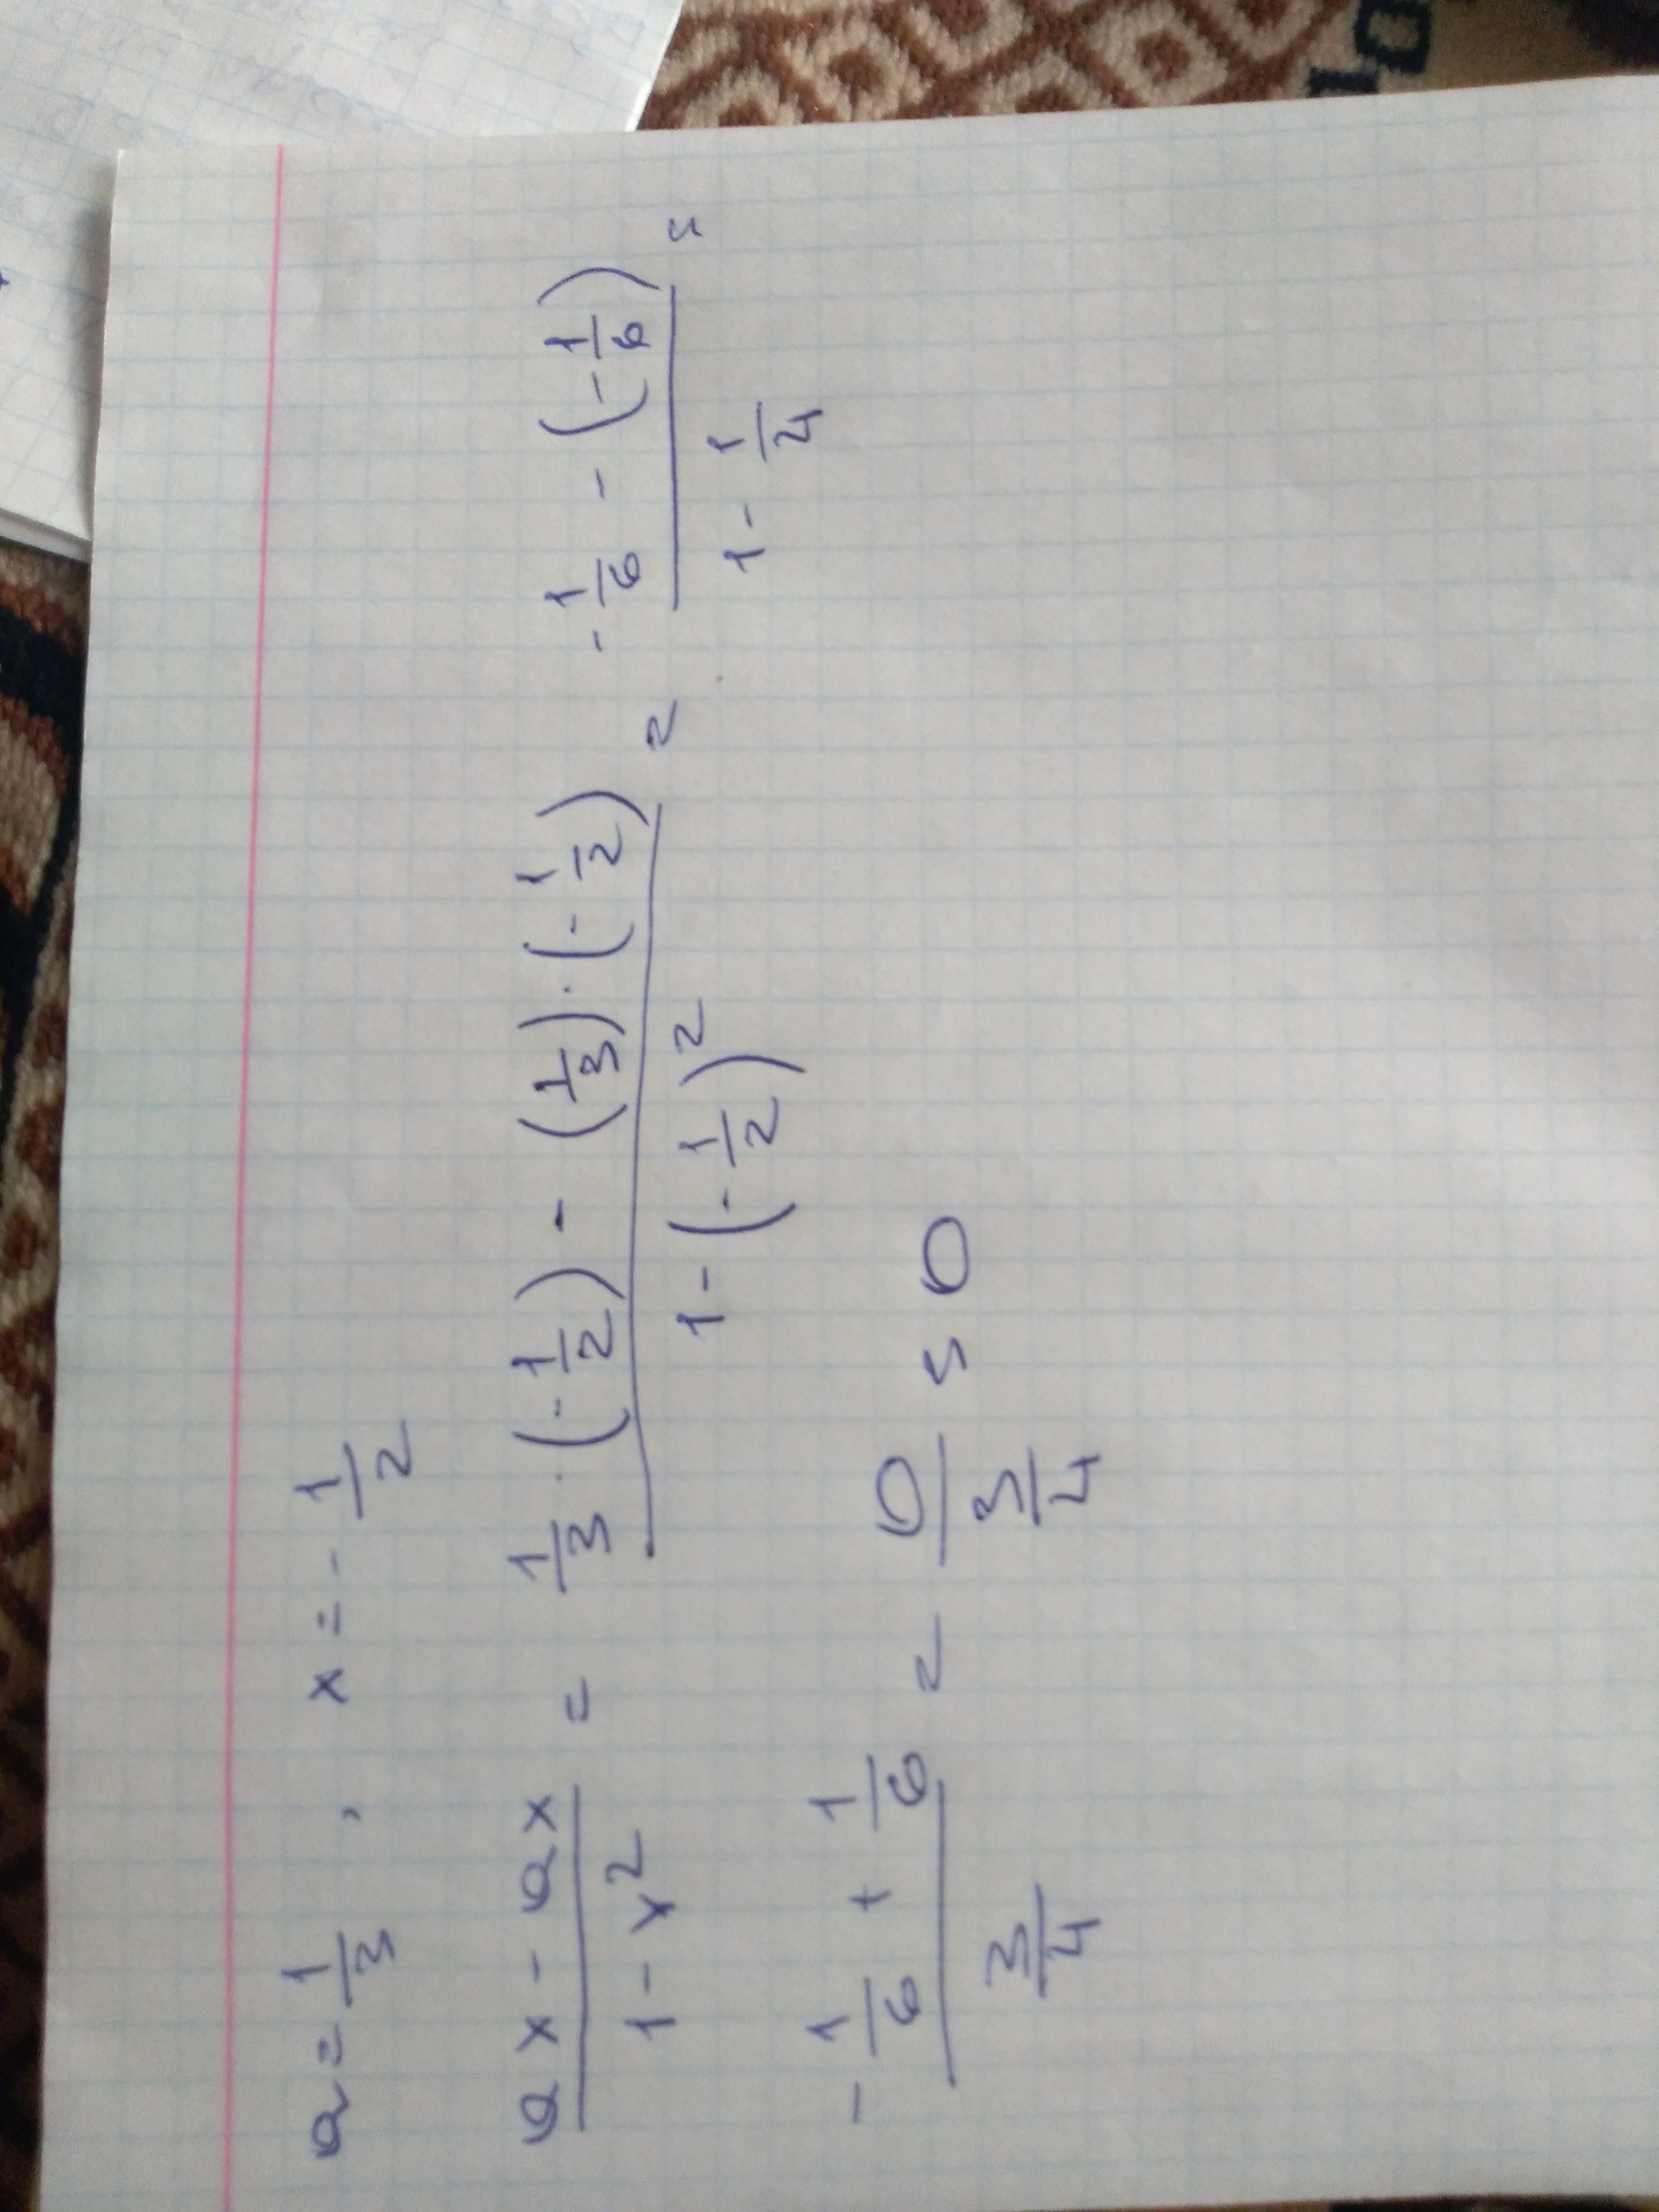 a = 1/3 , x = - 1/2
(ax - ax)/(1 - x²) = (1/3 · (-1/2) - (1/3) · (-1/2))/(1 - (-1/2)²) = (-1/6 - (-1/6))/(1 - 1/4) =
(-1/6 + 1/6)/(3/4) = 0/(3/4) = 0